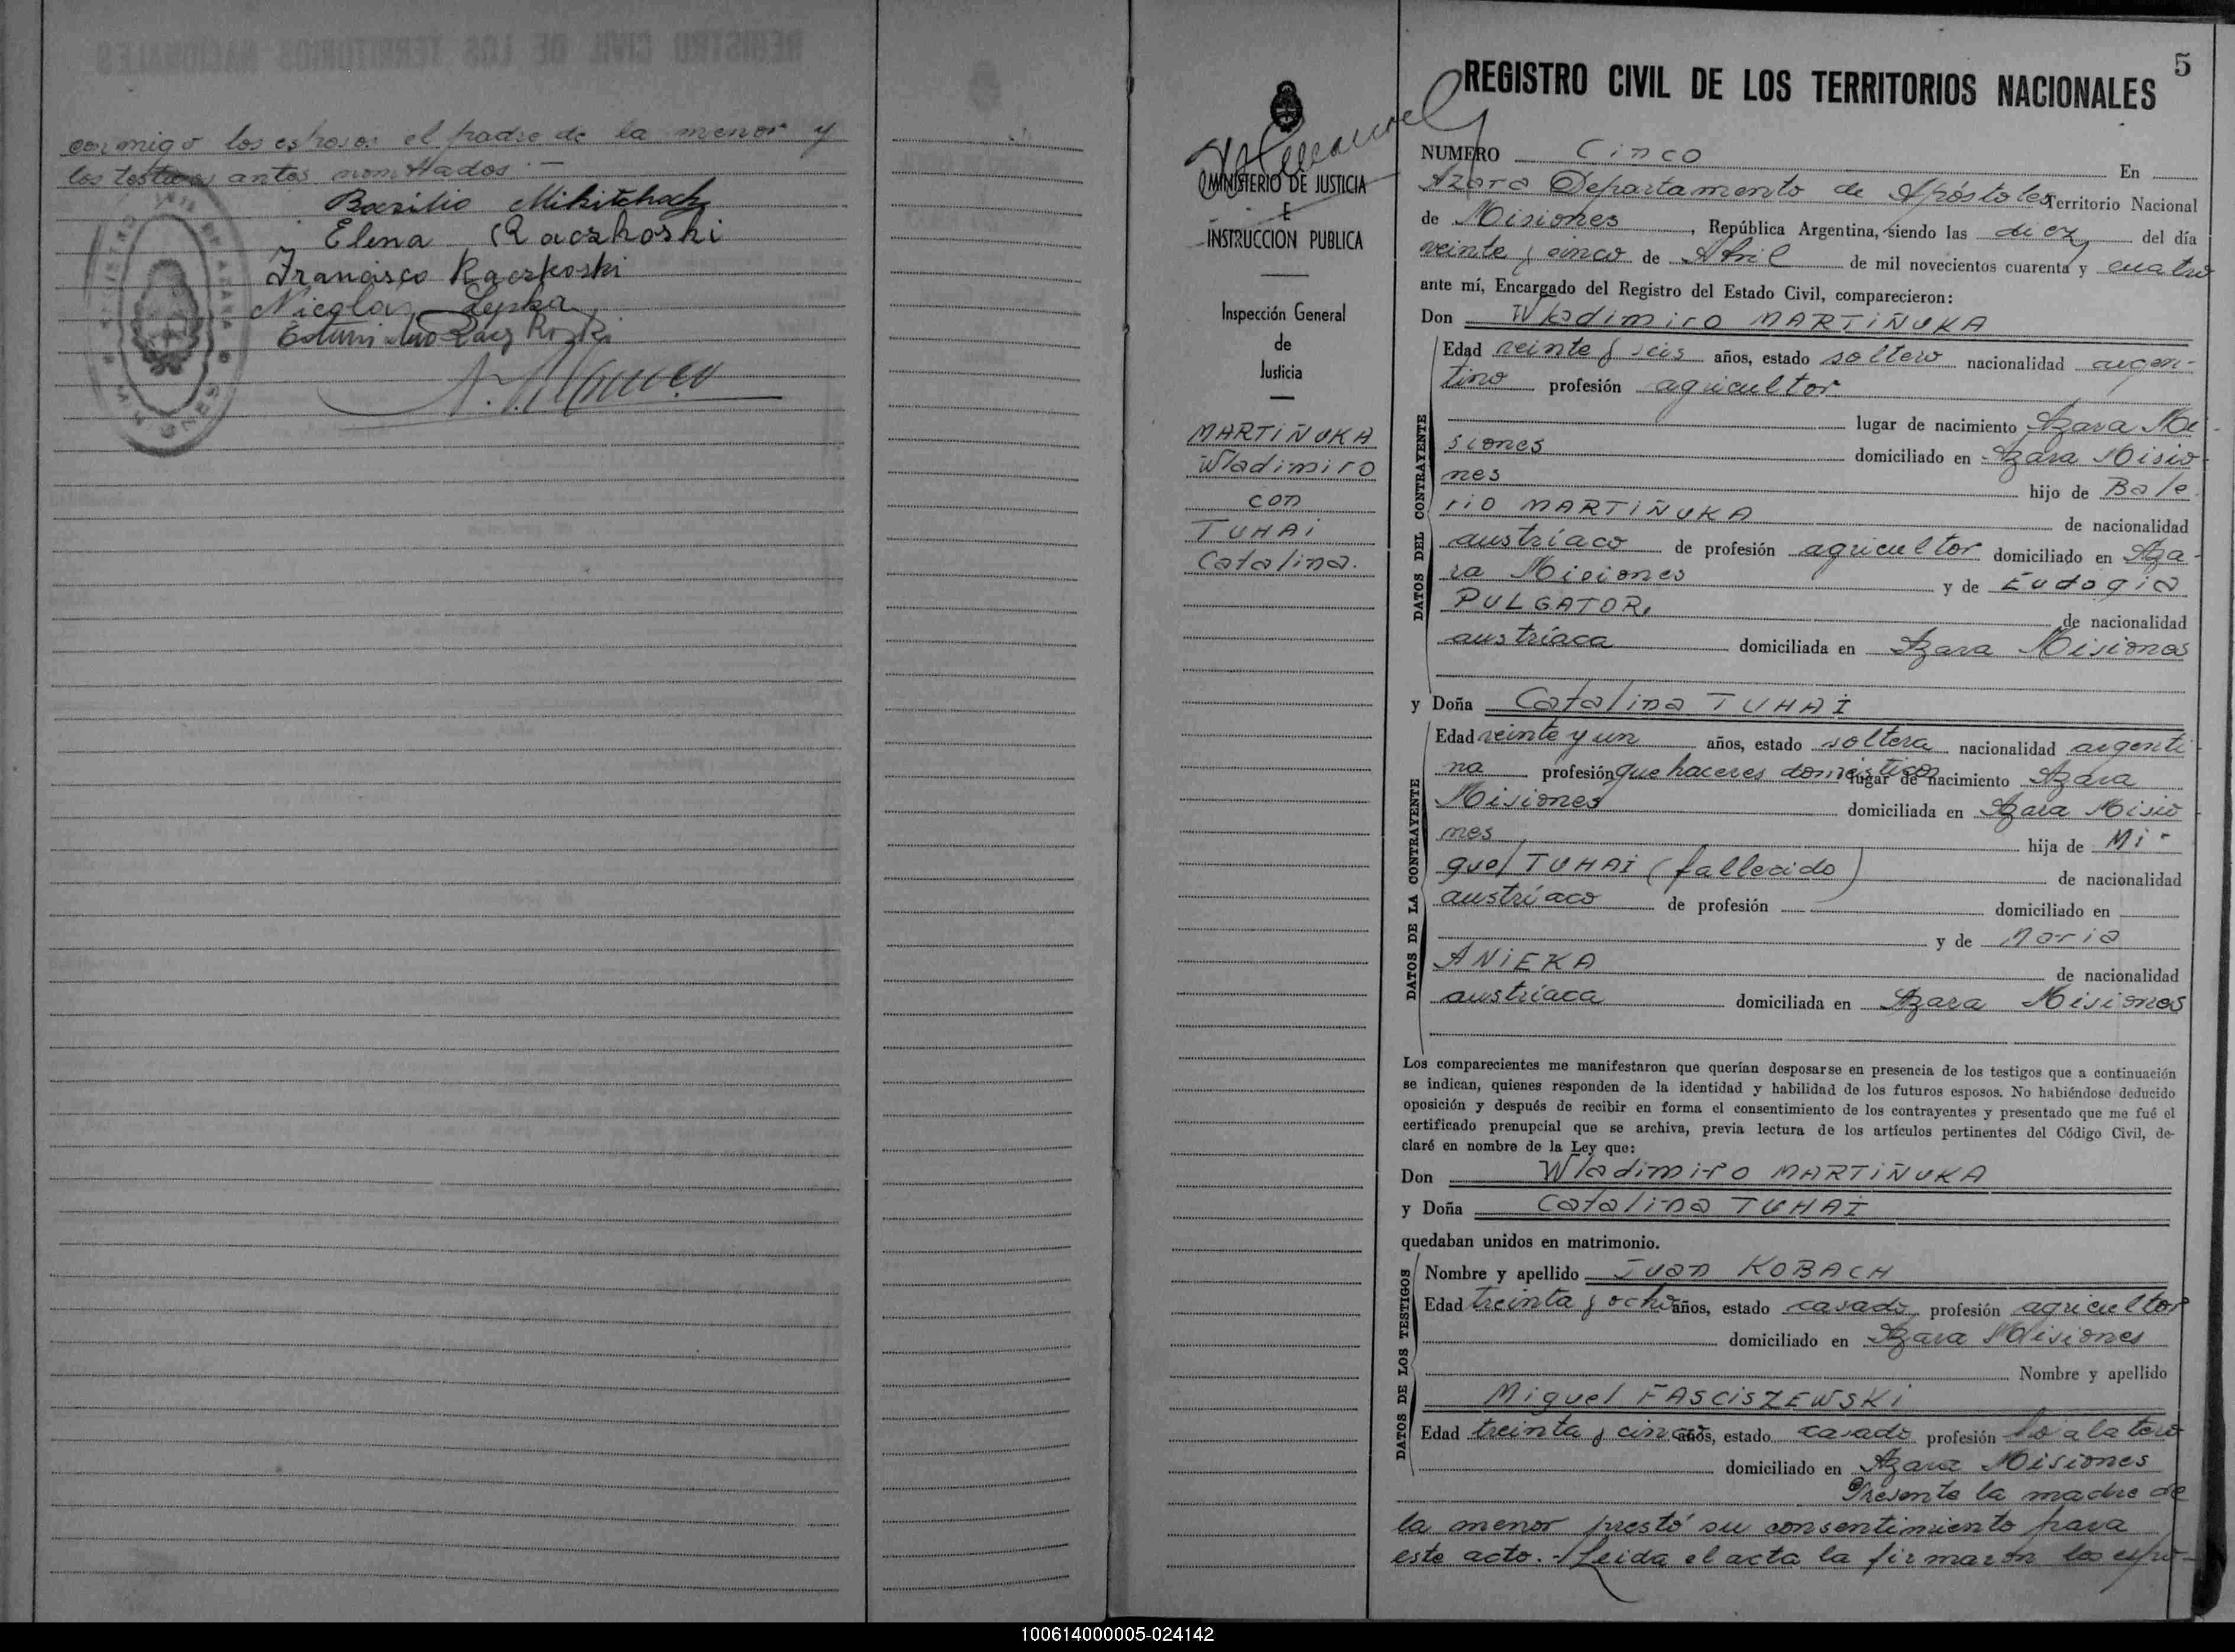 conmigo los esposos el padre de la menor y
los testigos antes nombrados.—
Basilio Mikitchack
Elena Raczkoski
Francisco Raczkoski
Nicolas Lepka
5
REGISTRO CIVIL DE LOS TERRITORIOS NACIONALES
MINISTERIO DE JUSTICIA
E
INSTRUCCION PUBLICA
Inspección General
de
Justicia
MARTIÑUKA
Wladimiro
con
TUHAI
Catalina.
NUMERO Cinco En
Azara Departamento de Apóstoles Territorio Nacional
de Misiones, República Argentina, siendo las diez del día
veinte y cinco de Abril de mil novecientos cuarenta y cuatro
ante mí, Encargado del Registro del Estado Civil, comparecieron:
Don Wladimiro MARTIÑUKA
DATOS DEL CONTRAYENTE
Edad veinte y seis años, estado soltero nacionalidad argen-
tino profesión agricultor
lugar de nacimiento Azara Mi-
siones domiciliado en Azara Misio-
nes hijo de Bale
rio MARTIÑUKA de nacionalidad
austríaco de profesión agricultor domiciliado en Aza-
ra Misiones y de Eudogia
PULGATOR, de nacionalidad
austríaca domiciliada en Azara Misiones
y Doña Catalina TUHAI
DATOS DE LA CONTRAYENTE
Edad veinte y un años, estado soltera nacionalidad argenti-
na profesión que haceres domésticos lugar de nacimiento Azara
Misiones domiciliada en Azara Misio-
nes hija de Mi-
guel TUHAI (fallecido) de nacionalidad
austríaco de profesión domiciliado en
y de Maria
ANIEKA de nacionalidad
austríaca domiciliada en Azara Misiones
Los comparecientes me manifestaron que querían desposarse en presencia de los testigos que a continuación
se indican, quienes responden de la identidad y habilidad de los futuros esposos. No habiéndose deducido
oposición y después de recibir en forma el consentimiento de los contrayentes y presentado que me fué el
certificado prenupcial que se archiva, previa lectura de los artículos pertinentes del Código Civil, de-
claré en nombre de la Ley que:
Don Wladimiro MARTIÑUKA
y Doña Catalina TUHAI
quedaban unidos en matrimonio.
DATOS DE LOS TESTIGOS
Nombre y apellido Juan KOBACH
Edad treinta y ocho años, estado casado profesión agricultor
domiciliado en Azara Misiones
Nombre y apellido
Miguel FASCISZEWSKI
Edad treinta y cinco años, estado casado profesión hojalatero
domiciliado en Azara Misiones
Presente la madre de
la menor prestó su consentimiento para
este acto.- Leida el acta la firmaron los espo-
100614000005-024142